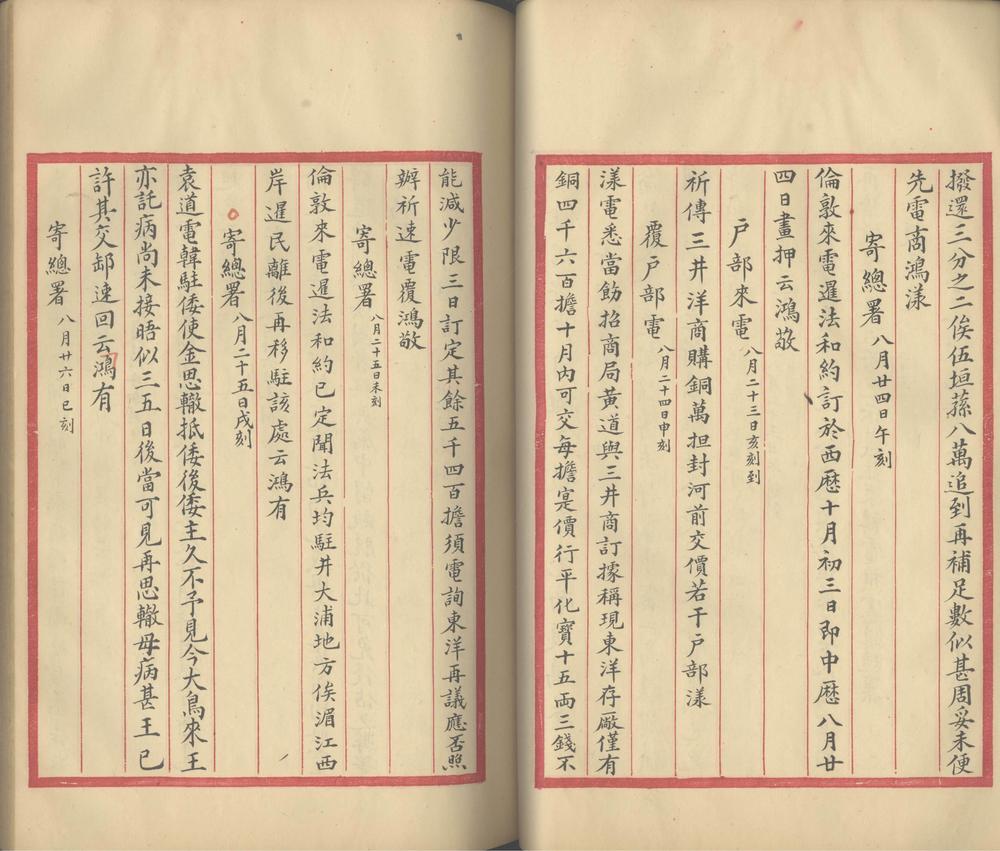 撥還三分之二俟伍垣蓀八萬追到再補足數似甚周妥未便
先電商鴻漾
寄總署八月廿四日午刻
倫敦來電暹法和約訂於西歷十月初三日即中歷八月廿
四日畫押云鴻敬
戶部來電八月二十三日亥刻到
祈傳三井洋商購銅萬担封河前交價若干戶部漾
覆戶部電八月二十四日申刻
漾電悉當飭招商局黃道與三井商訂據稱現東洋存厰僅有
銅四千六百擔十月內可交每擔寔價行平化寶十五兩三錢不
能減少限三日訂定其餘五千四百擔須電詢東洋再議應否照
辦祈速電覆鴻敬
寄總署八月二十五日未刻
倫敦來電暹法和約已定聞法兵均駐井大浦地方俟湄江西
岸暹民離後再移駐該處云鴻有
寄總署八月二十五日戌刻
袁道電韓駐倭使金思轍抵倭後倭主久不予見今大鳥來王
亦託病尚未接晤似三五日後當可見再思轍母病甚王已
許其交卸速回云鴻有
寄總署八月廿六日巳刻